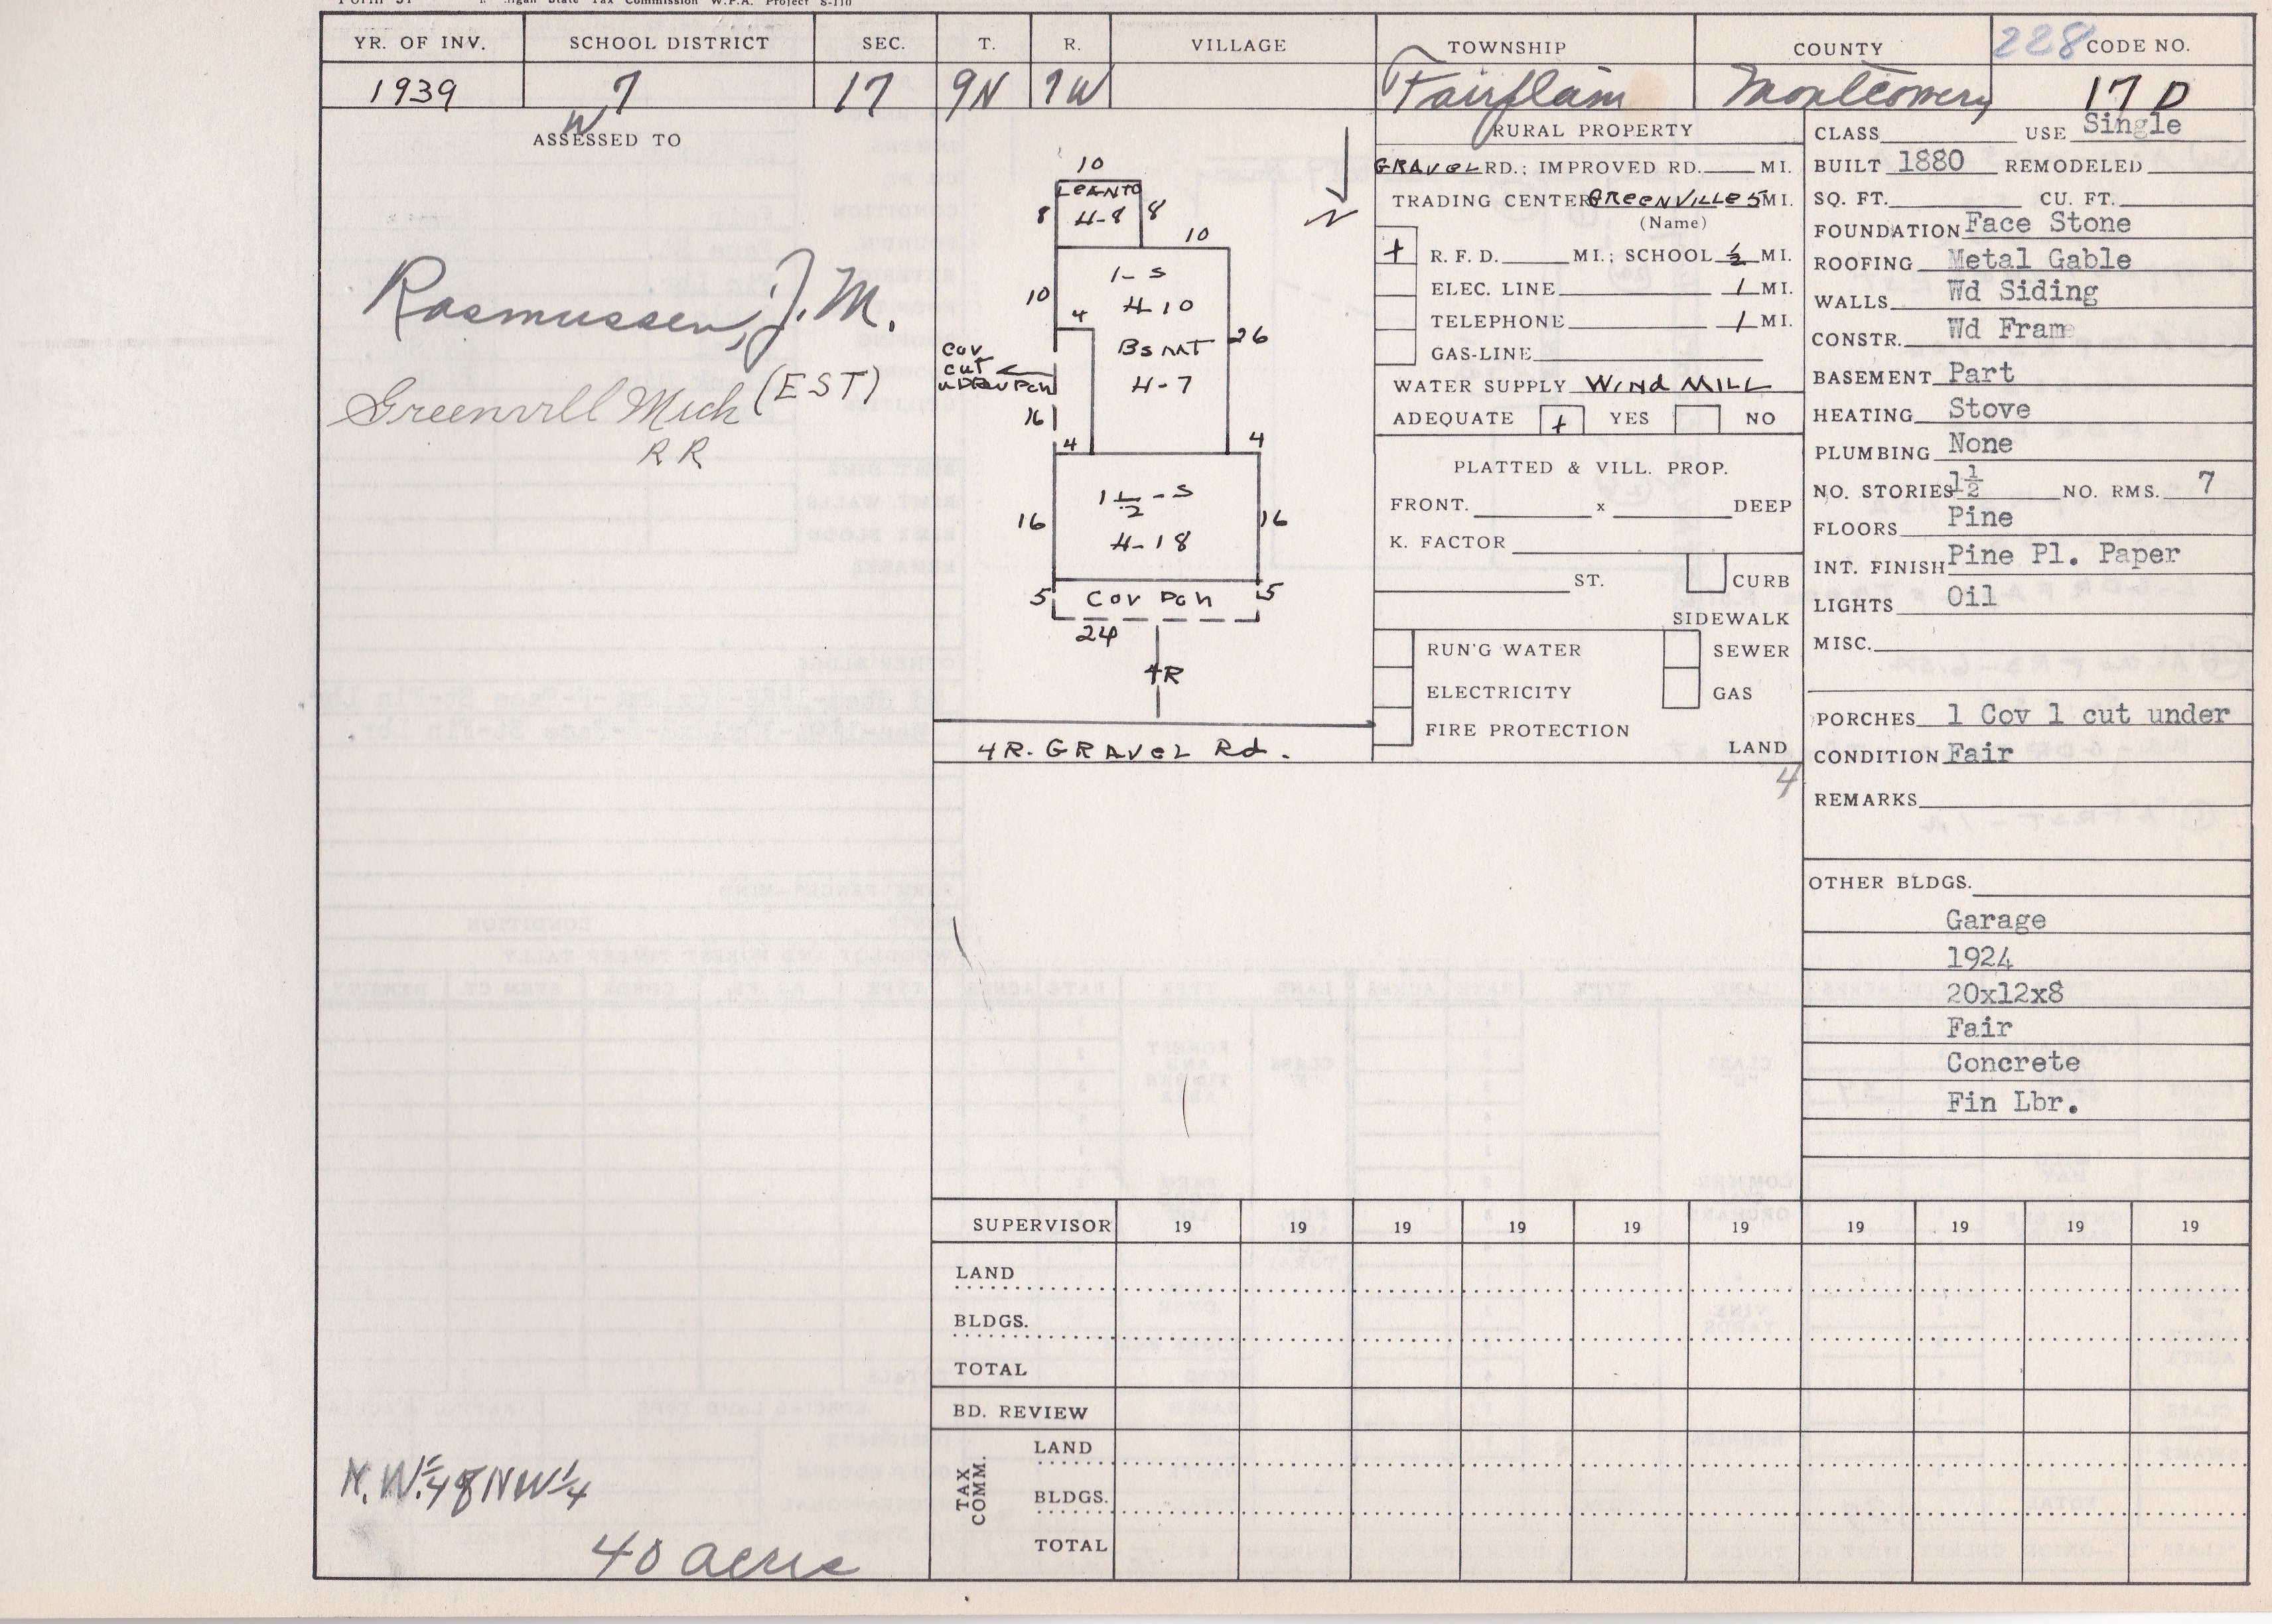 State Tax Commission W.P.A. Project S-110
YR. OF INV. SCHOOL DISTRICT SEC. T. R. VILLAGE TOWNSHIP COUNTY 228 CODE NO.
1939 7 17 9N 7W Fairplain Montcomery 17 D
W
ASSESSED TO
Rasmussen, J. M.
(EST)
Greenvill Mich
R R
N.W. 1/4 of NW 1/4
40 acres
10
LEANTO
8 H-8 8
10
1-S
10 H-10
4
26
BSMT
H-7
COV
CUT
UNDER PCH
16
4 4
1 1/2 - S
16 16
H-18
5 COV PCH 5
24
4R
N
4R. GRAVEL Rd.
RURAL PROPERTY
GRAVEL RD.; IMPROVED RD. MI.
TRADING CENTER GREENVILLE 5 MI.
(Name)
+ R. F. D. MI.; SCHOOL 1/2 MI.
ELEC. LINE 1 MI.
TELEPHONE 1 MI.
GAS-LINE
WATER SUPPLY WINd MILL
ADEQUATE + YES NO
PLATTED & VILL. PROP.
FRONT. x DEEP
K. FACTOR
ST. CURB
SIDEWALK
RUN'G WATER SEWER
ELECTRICITY GAS
FIRE PROTECTION
LAND
4
CLASS USE Single
BUILT 1880 REMODELED
SQ. FT. CU. FT.
FOUNDATION Face Stone
ROOFING Metal Gable
WALLS Wd Siding
CONSTR. Wd Frame
BASEMENT Part
HEATING Stove
PLUMBING None
NO. STORIES 1½ NO. RMS. 7
FLOORS Pine
INT. FINISH Pine Pl. Paper
LIGHTS Oil
MISC.
PORCHES 1 Cov 1 cut under
CONDITION Fair
REMARKS
OTHER BLDGS.
Garage
1924
20x12x8
Fair
Concrete
Fin Lbr.
SUPERVISOR 19 19 19 19 19 19 19 19 19 19
LAND
BLDGS.
TOTAL
BD. REVIEW
TAX COMM.
LAND
BLDGS.
TOTAL